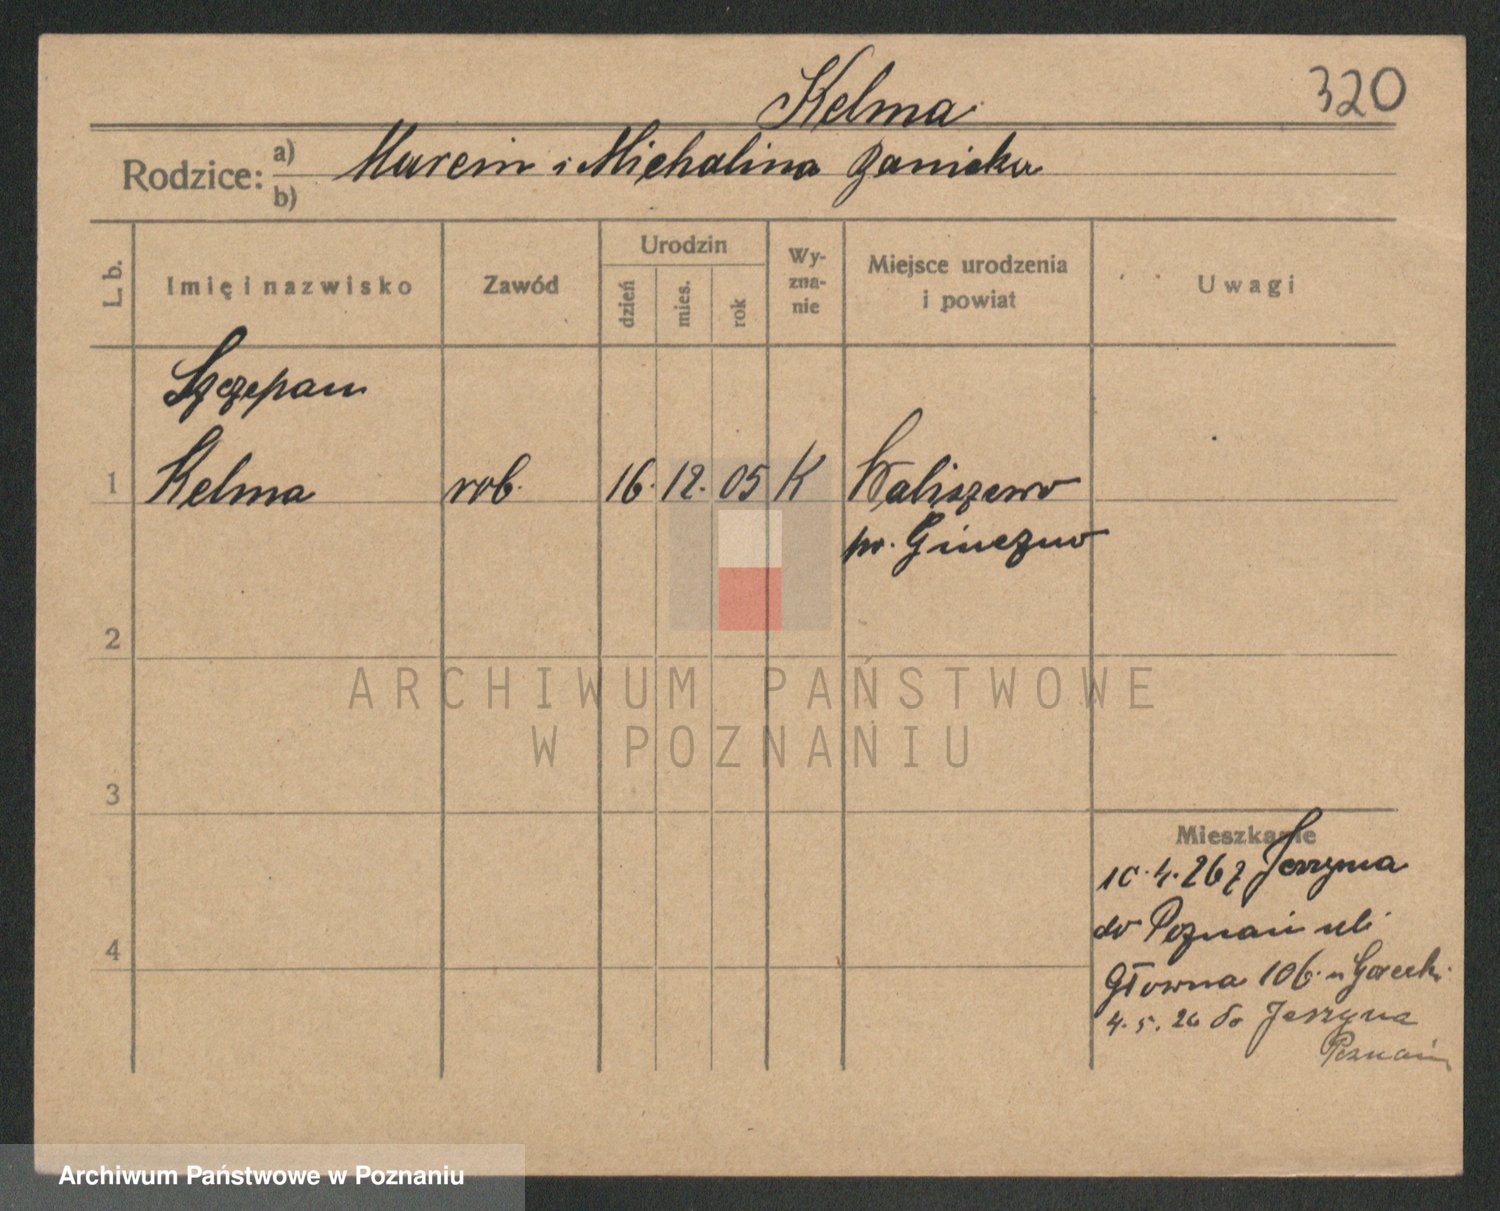 320
Kelma
Rodzice: a) b) Marcin i Michalina Janicka
L. b.
Imię i nazwisko
Zawód
Urodzin
dzień
mies.
rok
Wy-
zna-
nie
Miejsce urodzenia
i powiat
Uwagi
Szczepan
1 Kelma rob. 16. 12. 05 K Waliszewo
pow. Gniezno
2
3
4
ARCHIWUM PAŃSTWOWE
W POZNANIU
Mieszkanie
10.4.26 z Jerzyna
do Poznań ul.
Głowna 106. u Górecki
4.5.26 do Jerzyna
Poznań
Archiwum Państwowe w Poznaniu